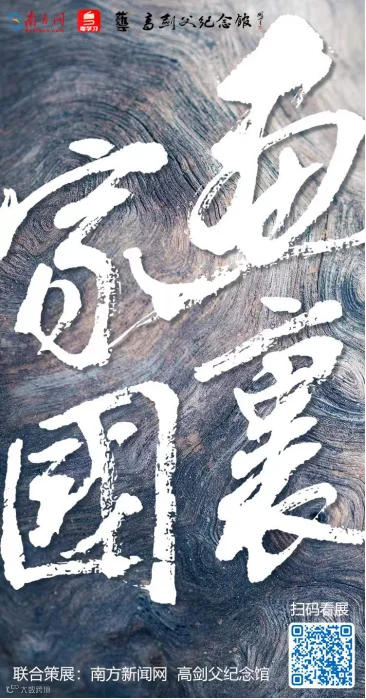 南方网 粤学习 高剑父纪念馆
画裏
家國
扫码看展
联合策展：南方新闻网 高剑父纪念馆
大数跨境